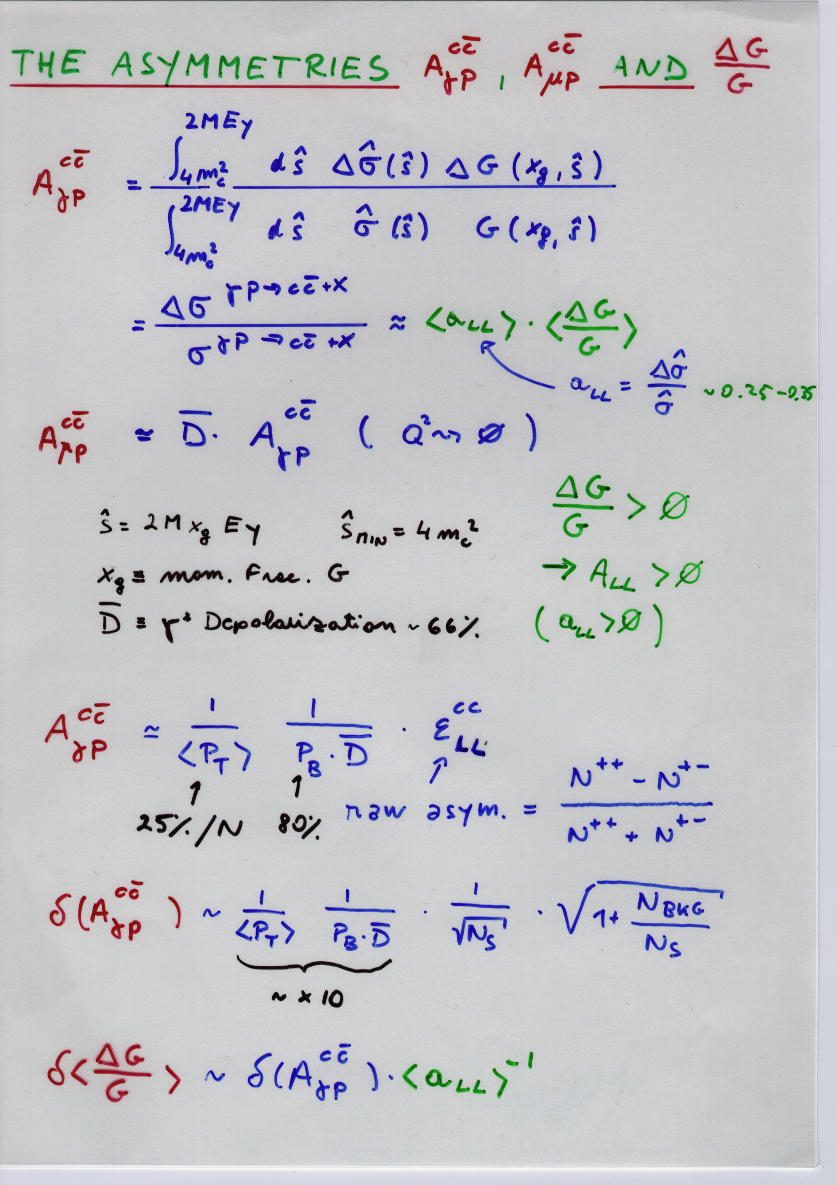 THE ASYMMETRIES A_γP^{cc̄}, A_μP^{cc̄} AND ΔG/G
A_γP^{cc̄} = ∫_{4m_c²}^{2MEγ} dŝ Δσ̂(ŝ) ΔG(x_g, ŝ) / ∫_{4m_c²}^{2MEγ} dŝ σ̂(ŝ) G(x_g, ŝ)
= Δσ^{γP→cc̄+X} / σ^{γP→cc̄+X} ≈ <a_LL> · <ΔG/G>
a_LL = Δσ̂/σ̂ ~0.25-0.35
A_μP^{cc̄} ≃ D̄ · A_γP^{cc̄} ( Q² ~> Ø )
ŝ = 2M x_g Eγ ŝ_MIN = 4m_c² ΔG/G > Ø
x_g ≡ mom. Frac. G → A_LL > Ø
D̄ ≡ γ* Depolarization ~ 66% (a_LL > Ø)
A_γP^{cc̄} ≃ 1/<P_T> 1/(P_B · D̄) · ε_LL^{cc}
25%/N 80% raw asym. = (N^{++} - N^{+-}) / (N^{++} + N^{+-})
δ(A_γP^{cc̄}) ~ 1/<P_T> 1/(P_B · D̄) · 1/√N_S · √(1 + N_BKG/N_S)
~ x 10
δ<ΔG/G> ~ δ(A_γP^{cc̄}) · <a_LL>^{-1}